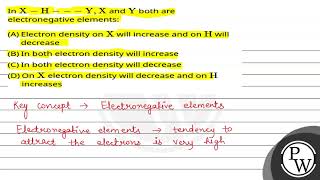 In X − H − − − Y, X and Y both are
electronegative elements:
(A) Electron density on X will increase and on H will
decrease
(B) In both electron density will increase
(C) In both electron density will decrease
(D) On X electron density will decrease and on H
increases
Key concept → Electronegative elements
Electronegative elements → tendency to
attract the electrons is very high
P
W